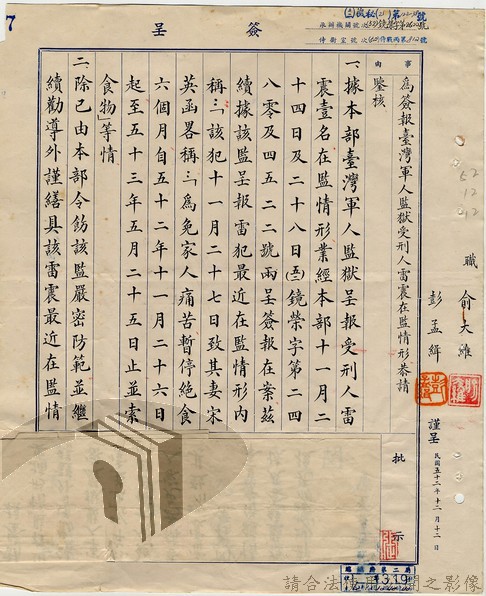 簽呈
事由
為簽報臺灣軍人監獄受刑人雷震在監情形恭請
鑒核
一、據本部臺灣軍人監獄呈報受刑人雷
震壹名在監情形業經本部十一月二
十四日及二十八日(52)鏡榮字第二四
八零及四五二二號兩呈簽報在案茲
續據該監呈報雷犯最近在監情形內
稱：「該犯十一月二十七日致其妻宋
英函畧稱：『為免家人痛苦暫停絶食
六個月自五十二年十一月二十六日
起至五十三年五月二十五日止並索
食物』」等情
二、除已由本部令飭該監嚴密防範並繼
續勸導外謹繕具該雷震最近在監情
批示
職
俞大維
彭孟緝
謹呈
民國五十二年十二月十二日
52
12
12
7
承辦機關號次
侍衛室號次
1319
請合法使用公開之影像